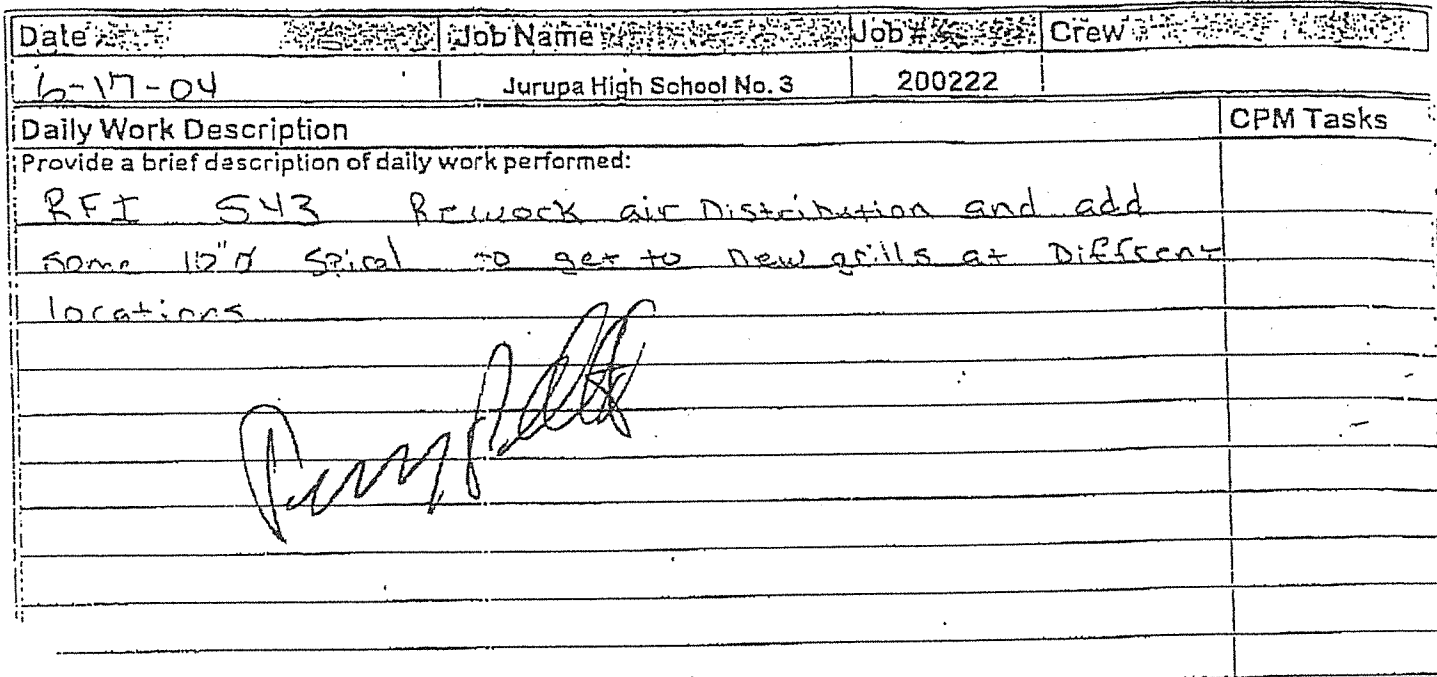 Date Job Name Job # Crew
6-17-04 Jurupa High School No. 3 200222
Daily Work Description CPM Tasks
Provide a brief description of daily work performed:
RFI 543 Rework air Distribution and add
some 12"ø Spiral to get to new grills at Diffrent
locations